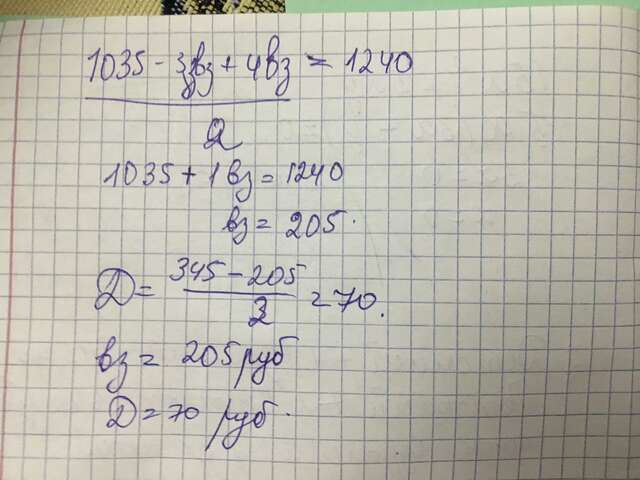 1035 - 3вз + 4вз = 1240
2
1035 + 1вз = 1240
вз = 205.
D = 345 - 205 = 70.
2
вз = 205 руб
D = 70 руб.